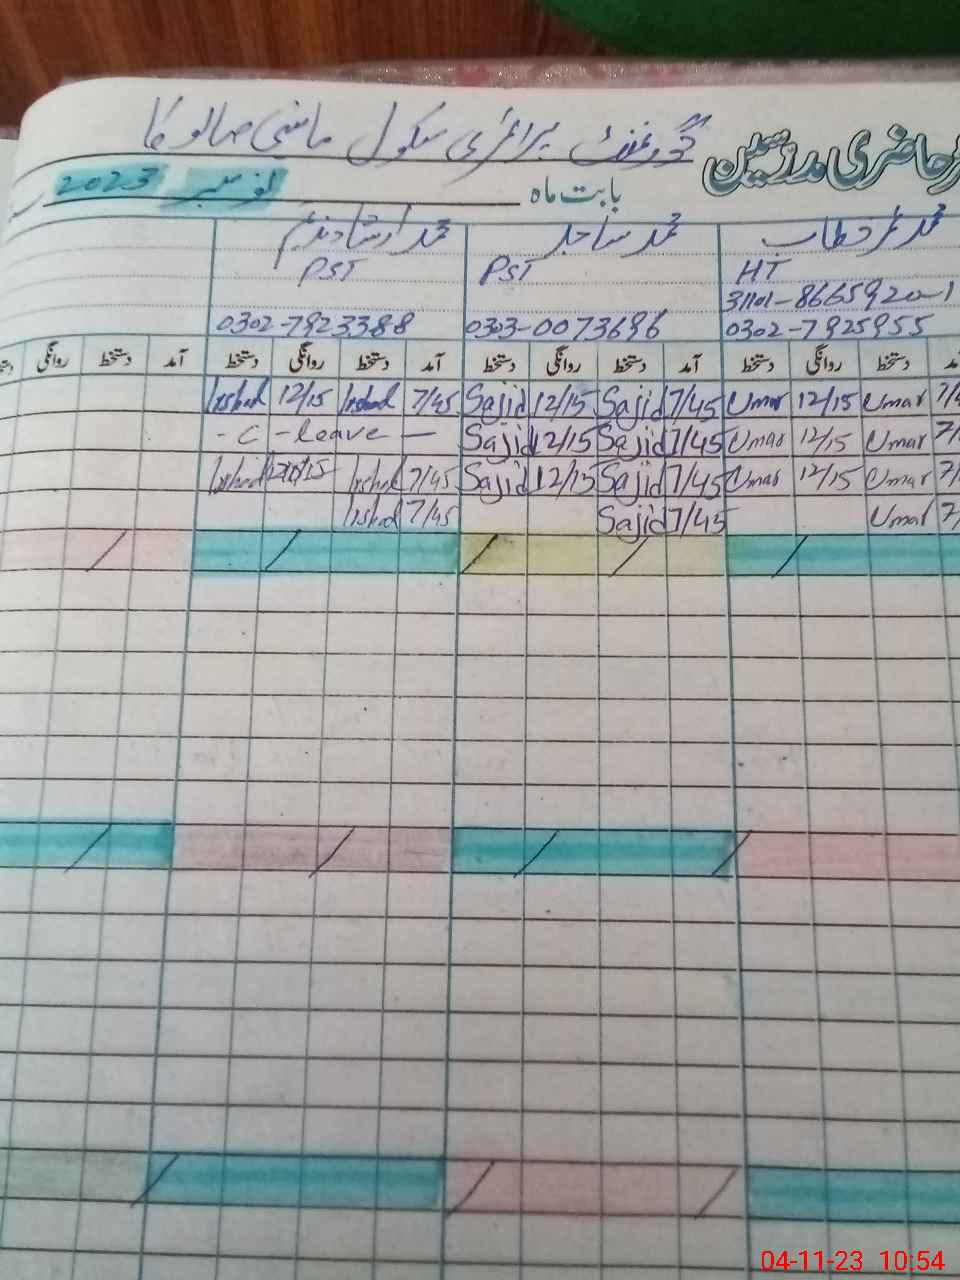 گورنمنٹ پرائمری سکول ماضی صالوکا
حاضری مدرسین
بابت ماہ نومبر 2023
محمد عمر خطاب محمد ساجد محمد ارشاد ندیم
HT PST PST
31101-8665920-1
0302-7925955 0303-0073696 0302-7923388
آمد دستخط روانگی دستخط آمد دستخط روانگی دستخط آمد دستخط روانگی دستخط آمد دستخط روانگی
Irshad 12/15 Irshad 7/45 Sajid 12/15 Sajid 7/45 Umar 12/15 Umar
- C - leave — Sajid 12/15 Sajid 7/45 Umar 12/15 Umar
Irshad 12/15 Irshad 7/45 Sajid 12/15 Sajid 7/45 Umar 12/15 Umar
Irshad 7/45 Sajid 7/45 Umar
04-11-23 10:54